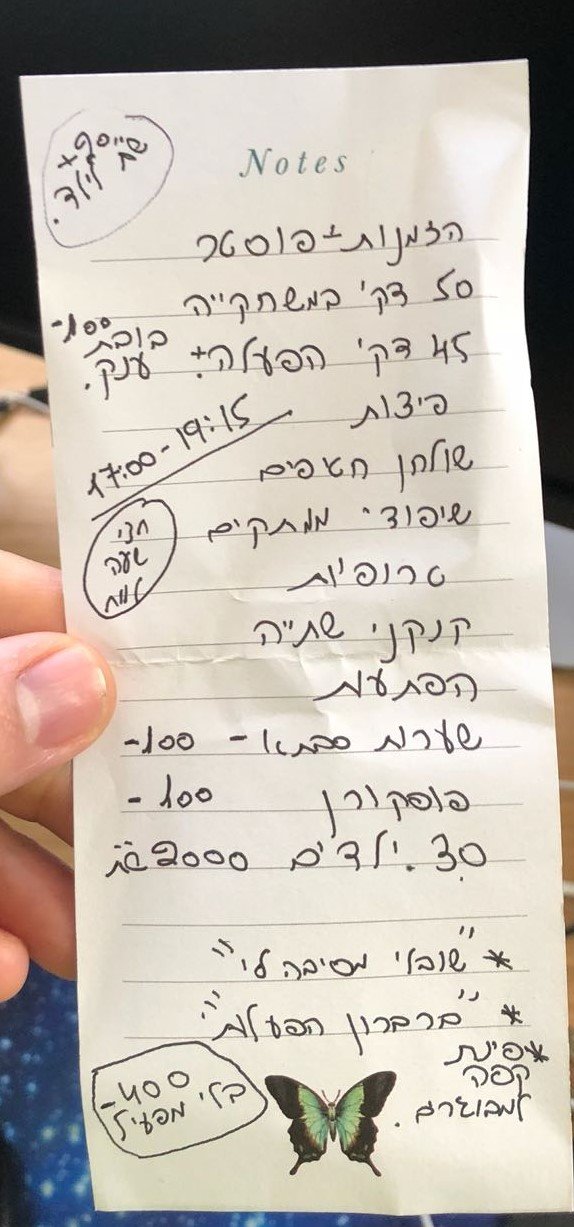 Notes
הזמנות + פוסטר
50 דק' במשחקייה
45 דק' הפעלה + בובת ענק.
-100
פיצות
17:00-19:15
שולחן חטיפים
שיפודי ממתקים
חצי
שעה
טרופיות
קנקני שתייה
הפתעות
שערות סבתא - 100-
פופקורן 100 -
30 ילדים 2000
* "שובלי מסיבה לי"
* "ברברון הפעלות"
* פינת
קפה
למבוגרים.
-400
בלי מפעיל